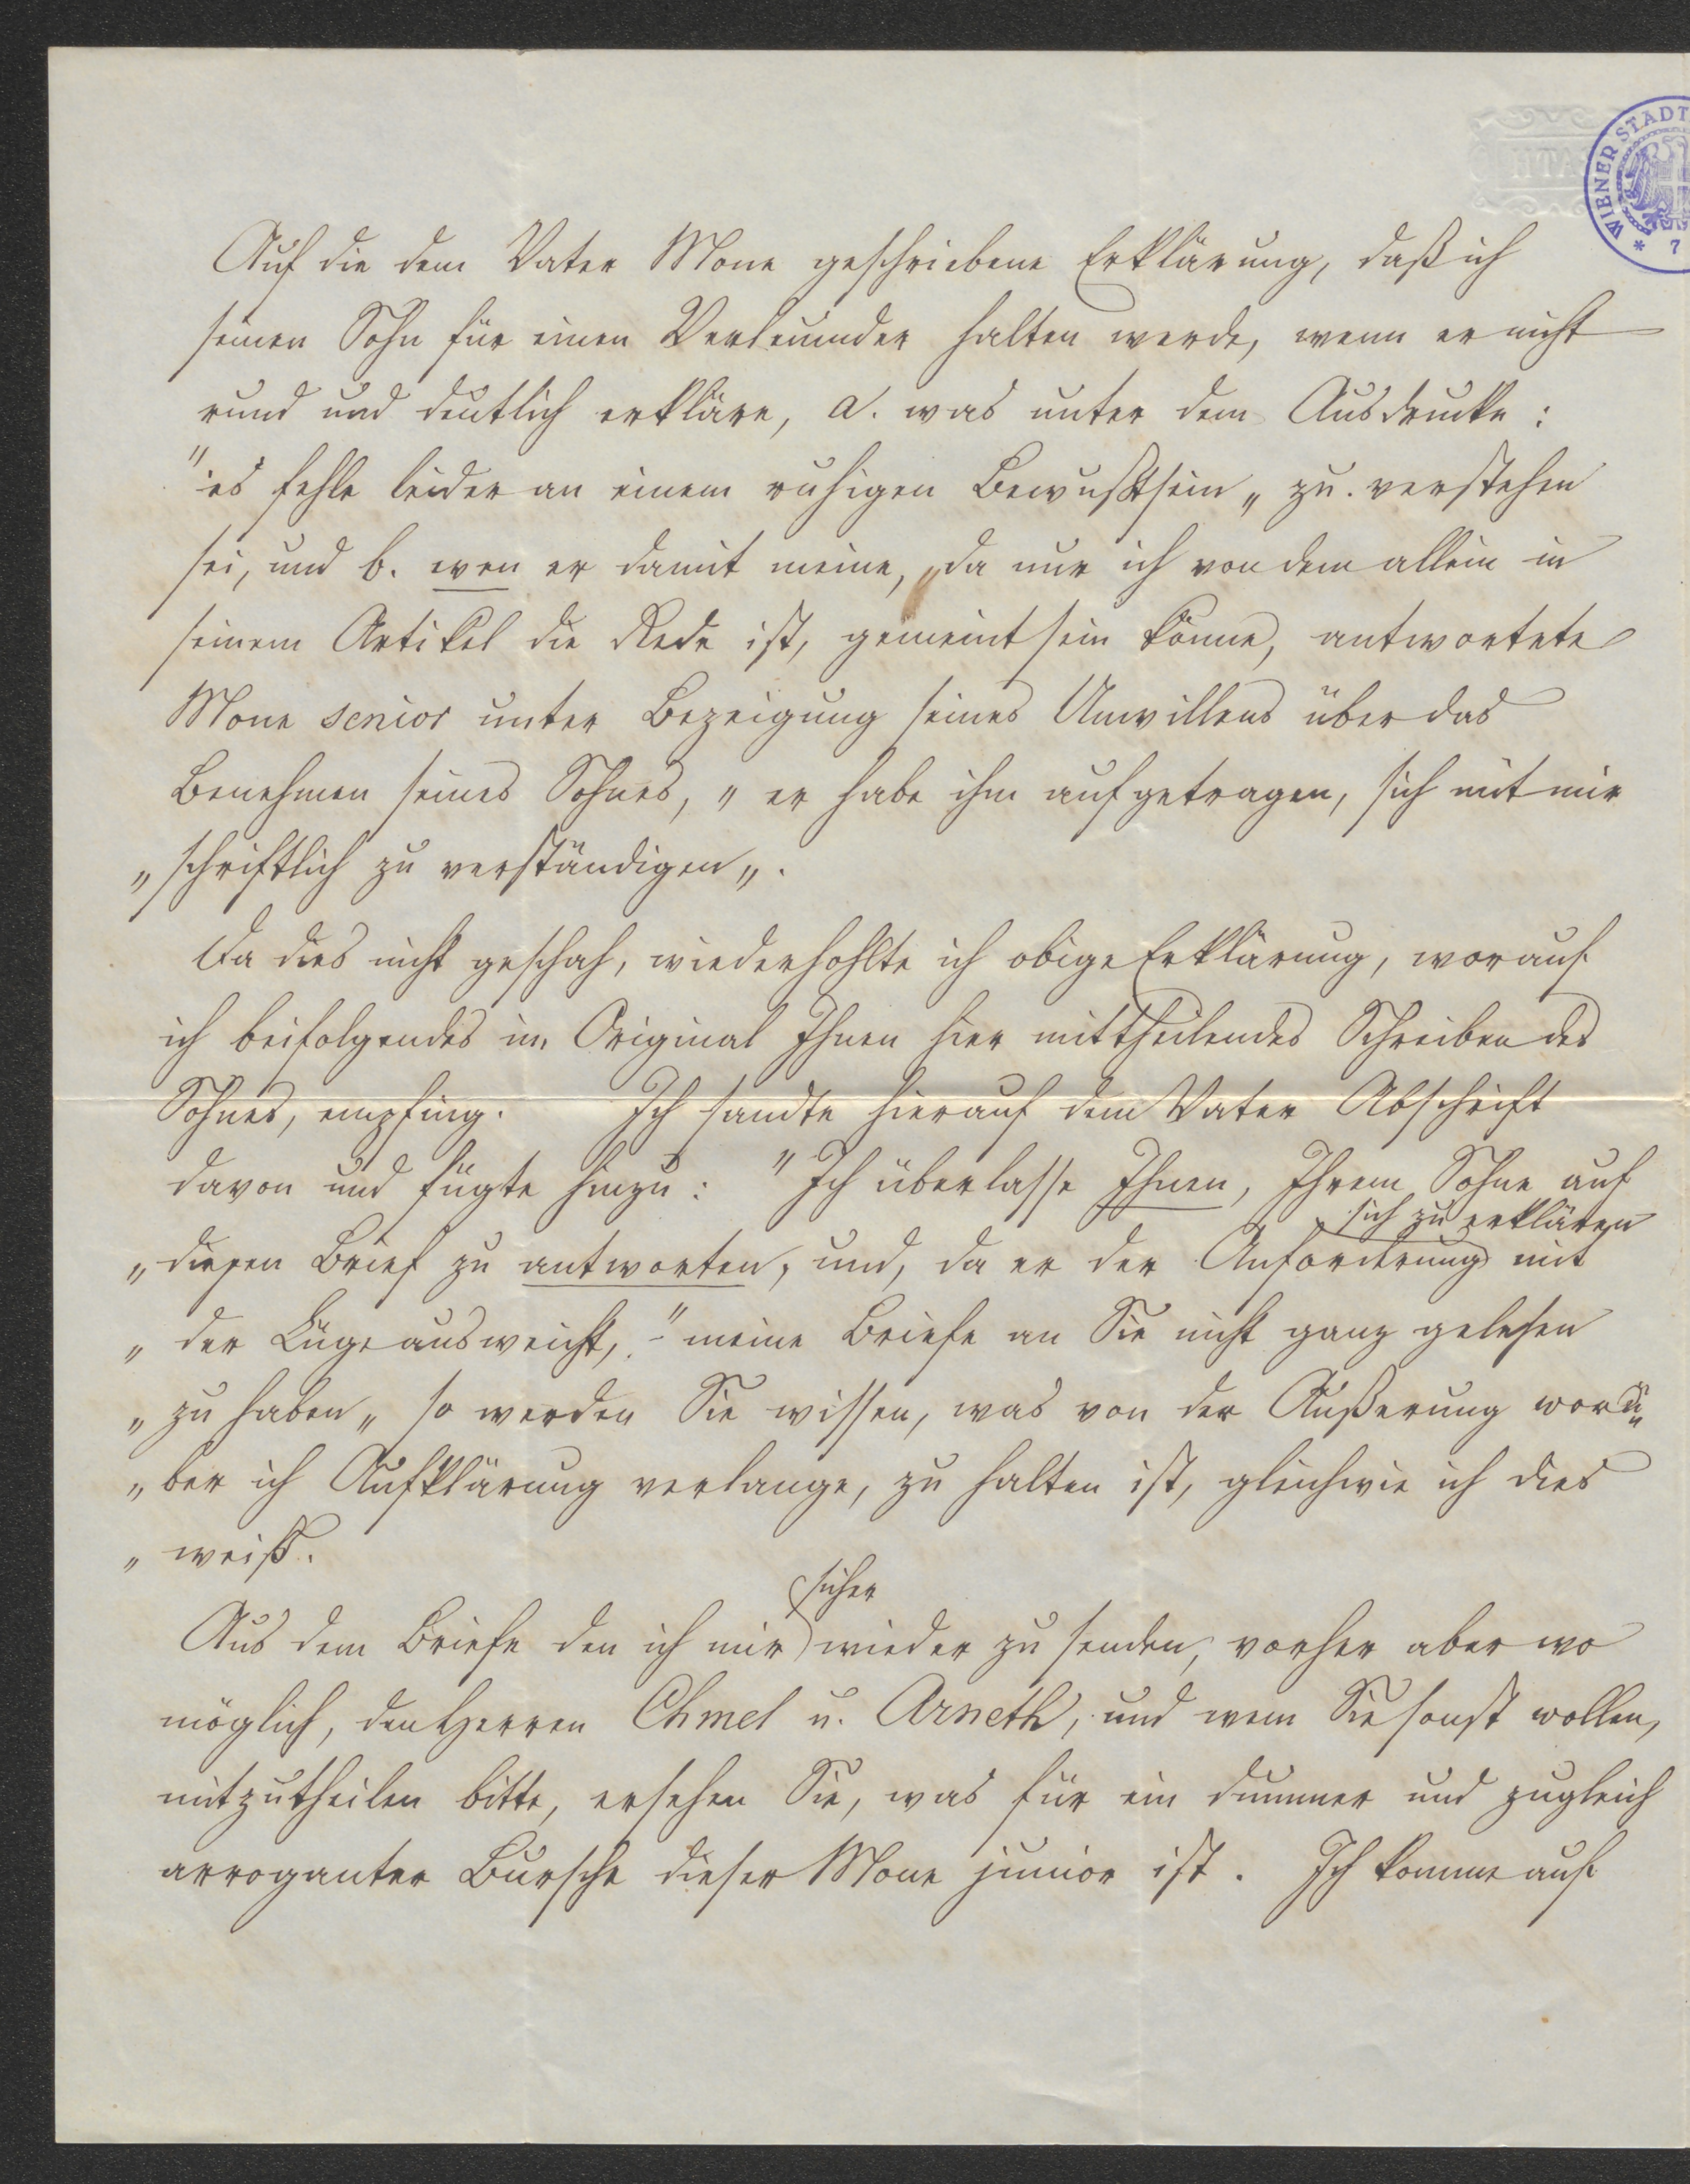 WIENER STADT
* 7
Auf die dem Vater Mone geschriebene Erklärung, daß ich
seinen Sohn für einen Verleumder halten werde, wenn er nicht
rund und deutlich erkläre, a. was unter dem Ausdrucke:
"es fehle leider an einem ruhigen Bewußtsein„ zu verstehen
sei, und b. wen er damit meine, „da nur ich von dem allein in
seinem Artikel die Rede ist, gemeint sein könne, antwortete
Mone senior unter Bezeigung seines Unwillens über das
Benehmen seines Sohnes, „er habe ihm aufgetragen, sich mit mir
„schriftlich zu verständigen„.
Da dies nicht geschah, wiederhohlte ich obige Erklärung, worauf
ich beifolgendes im Original Ihnen hier mittheilendes Schreiben des
Sohnes, empfing. Ich sandte hierauf dem Vater Abschrift
davon und fügte hinzu: "Ich überlasse Ihnen, Ihrem Sohne auf
sich zu erklären
„diesen Brief zu antworten, und, da er der Anforderung mit
„der Lüge ausweicht, "meine Briefe an Sie nicht ganz gelesen
„zu haben„ so werden Sie wissen, was von der Äußerung worü„
„ber ich Aufklärung verlange, zu halten ist, gleichwie ich dies
„weiß.
sicher
Aus dem Briefe den ich mir wieder zu senden, vorher aber wo
möglich, den Herren Chmel u. Arneth, und wem Sie sonst wollen,
mitzutheilen bitte, ersehen Sie, was für ein dummer und zugleich
arroganter Bursche dieser Mone junior ist. Ich komme auf